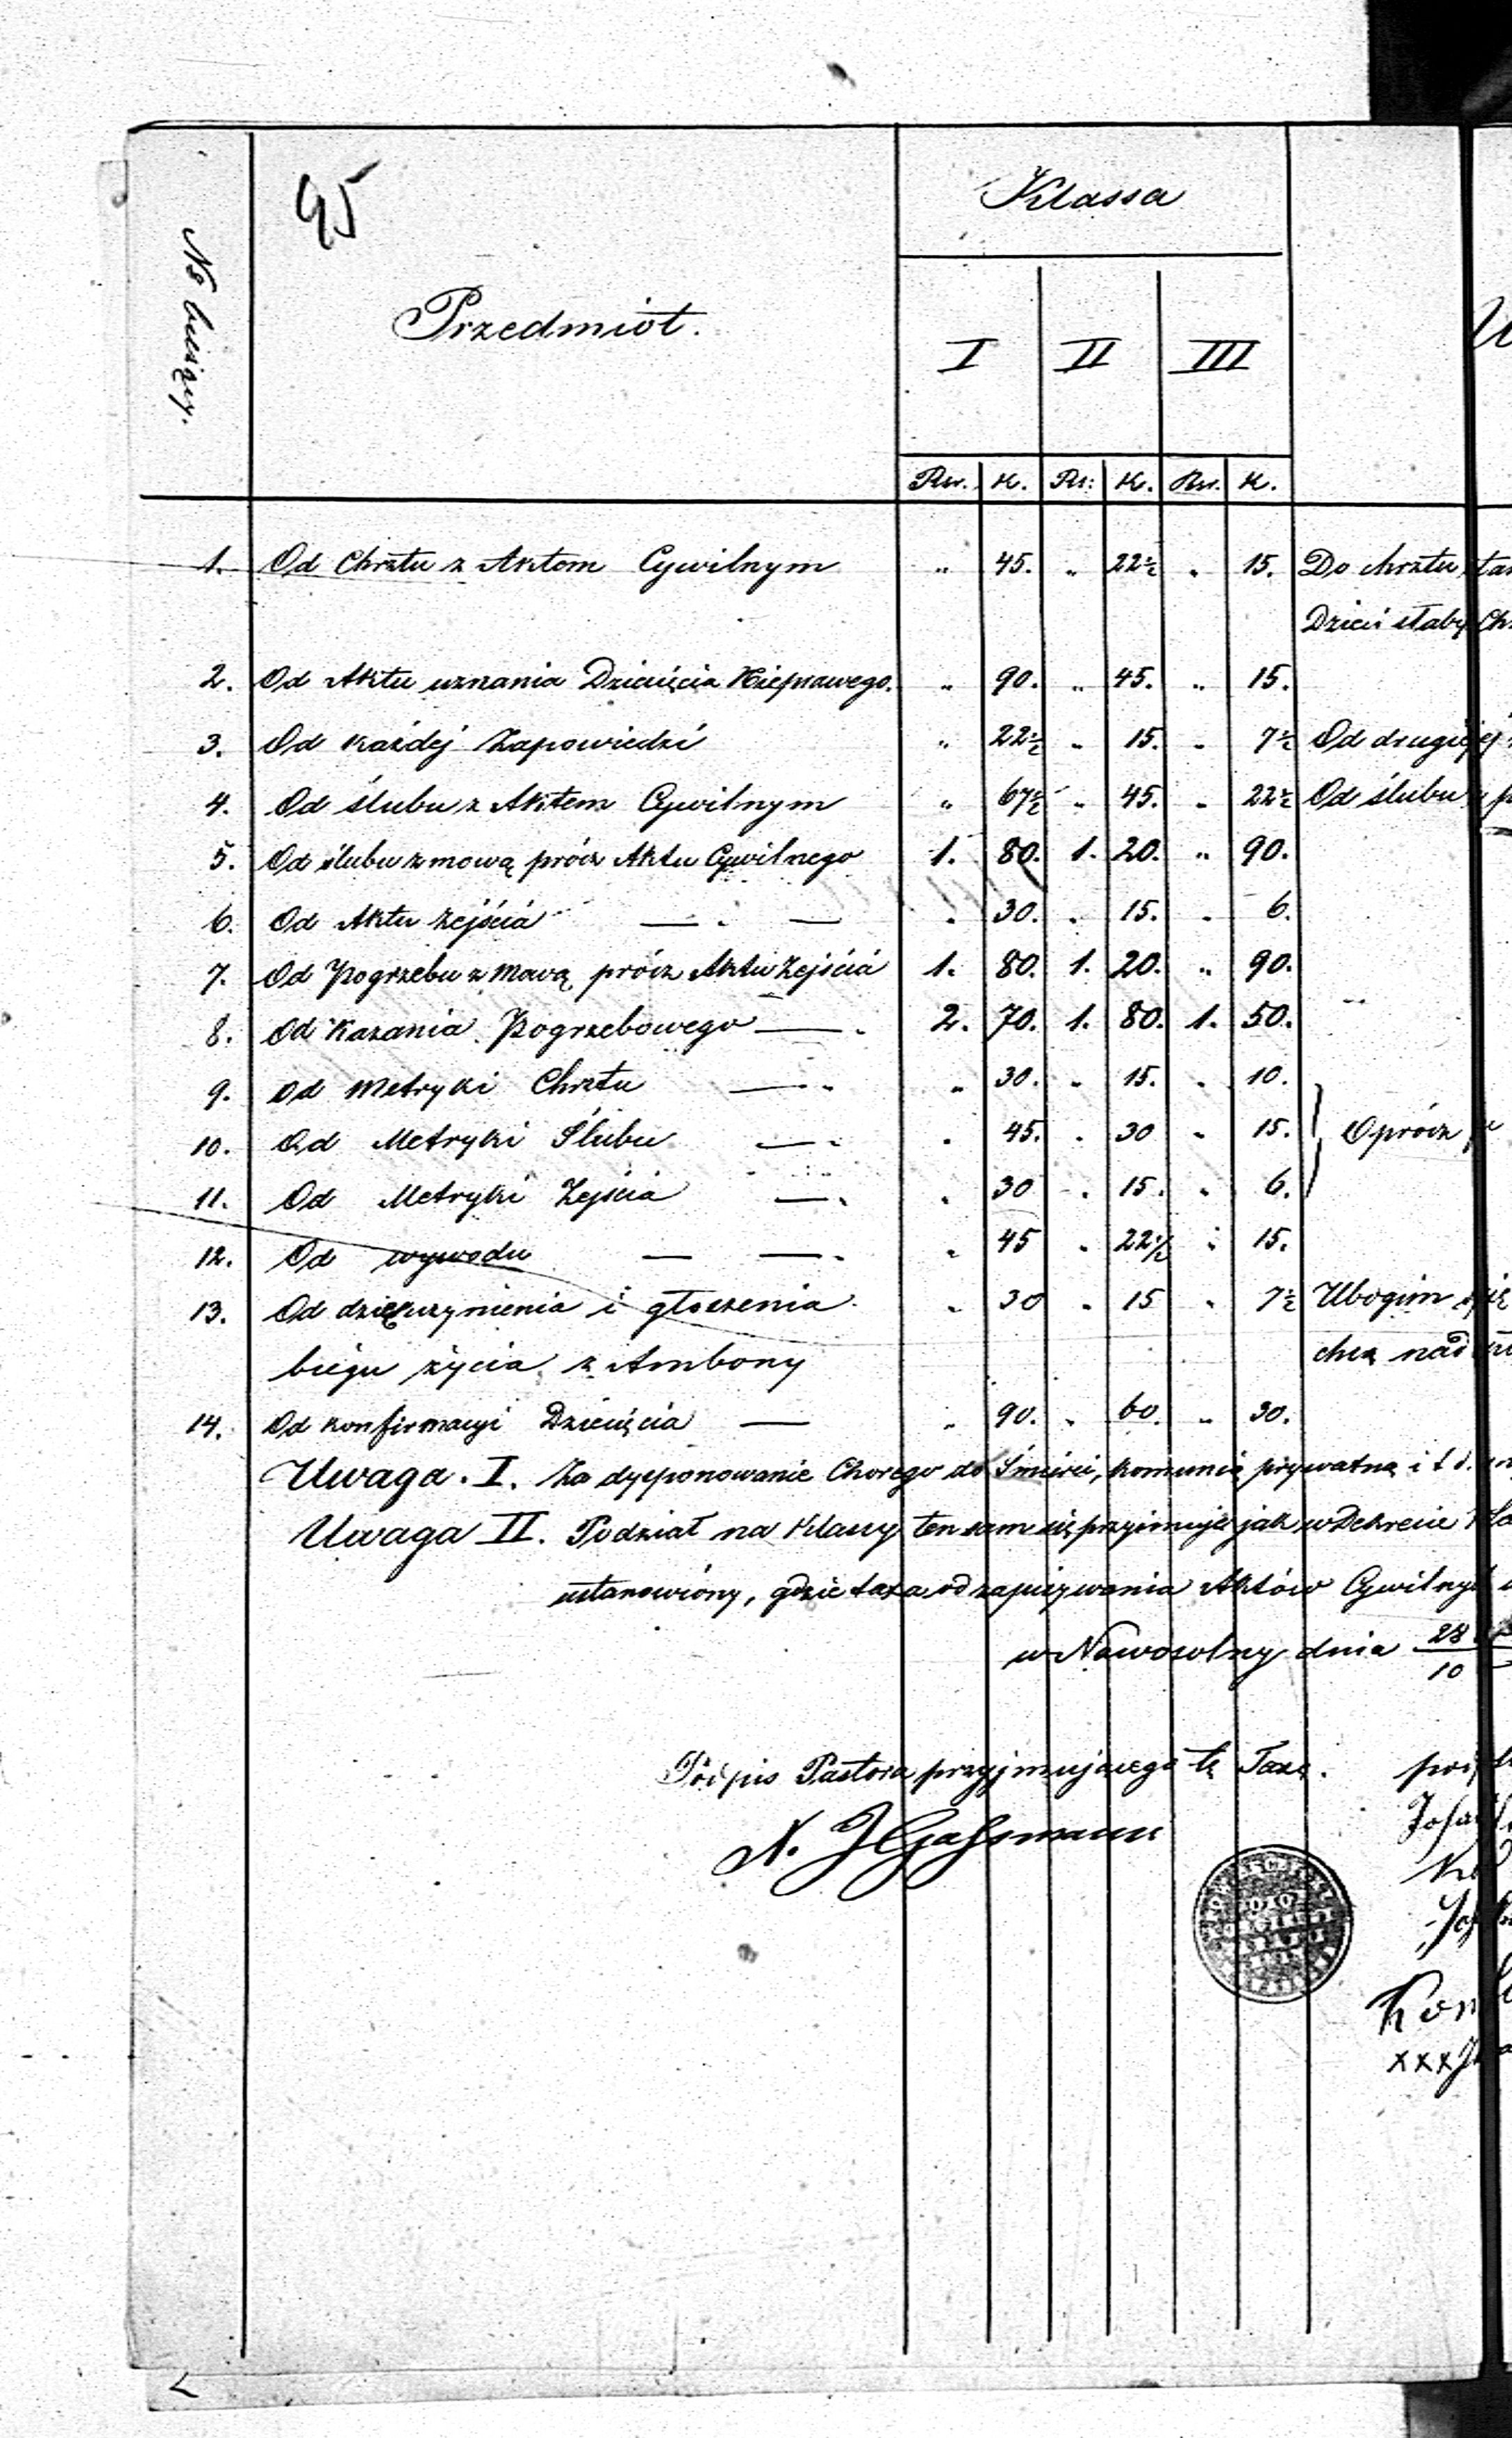 95
Klassa
№ bieżący.
Przedmiot.
I II III
Rsr. K. Rs: K. Rsr. K.
1. Od Chrztu z Aktom Cywilnym " 45. " 22½ " 15. Do chrztu
Dzieci słaby
2. Od Aktu uznania Dziecięcia Nieprawego. " 90. " 45. " 15.
3. Od każdej Zapowiedzi " 22½ " 15. " 7½ Od drugiej
4. Od ślubu z Aktem Cywilnym " 67½ " 45. " 22½ Od ślubu
5. Od ślubu z mową prócz Aktu Cywilnego 1. 80. 1. 20. " 90.
6. Od Aktu Zejścia — . — " 30. " 15. " 6.
7. Od Pogrzebu z Mową prócz Aktu Zejścia 1. 80. 1. 20. " 90.
8. Od Kazania Pogrzebowego — . 2. 70. 1. 80. 1. 50.
9. Od Metryki Chrztu — . " 30. " 15. " 10.
10. Od Metryki Ślubu — . " 45. " 30 " 15. Oprócz
11. Od Metryki Zejścia — . " 30 " 15. " 6.
12. Od wywodu — — . " 45 " 22½ " 15.
13. Od dziękczynienia i głoszenia " 30 " 15 " 7½ Ubogim
biegu życia z Ambony chcą
14. Od konfirmacyi Dziecięcia — " 90. " 60. " 30.
Uwaga. I. Za dysponowanie Chorego do Śmierci, komunią prywatną i t d.
Uwaga II. Podział na Klassy ten sam się przyjmuje jak w Dekrecie
ustanowiony, gdzie taxa od zapisywania Aktów Cywilnych
w Nowosolny dnia 28/10
Podpis Pastora przyjmującego tę Taxę.
N. J Gassmann
xxx